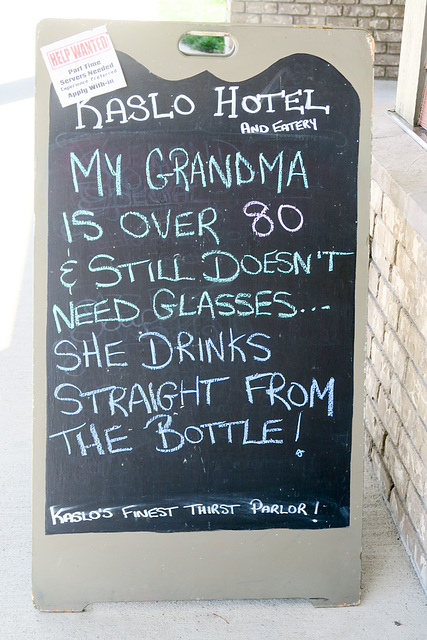 HELP WANTED
Part Time
Servers Needed
Experience Preferred
Apply With-in
KASLO HOTEL
AND EATERY
MY GRANDMA
IS OVER 80
& STILL DOESN'T
NEED GLASSES...
SHE DRINKS
STRAIGHT FROM
THE BOTTLE!
KASLO'S FINEST THIRST PARLOR!